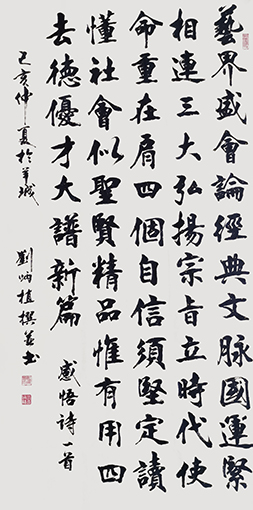 藝界盛會論經典文脈國運緊
相連三大弘揚宗旨立時代使
命重在肩四個自信須堅定讀
懂社會似聖賢精品惟有用四
去德優才大譜新篇
感悟詩一首
己亥仲夏於羊城
劉炳植撰並書